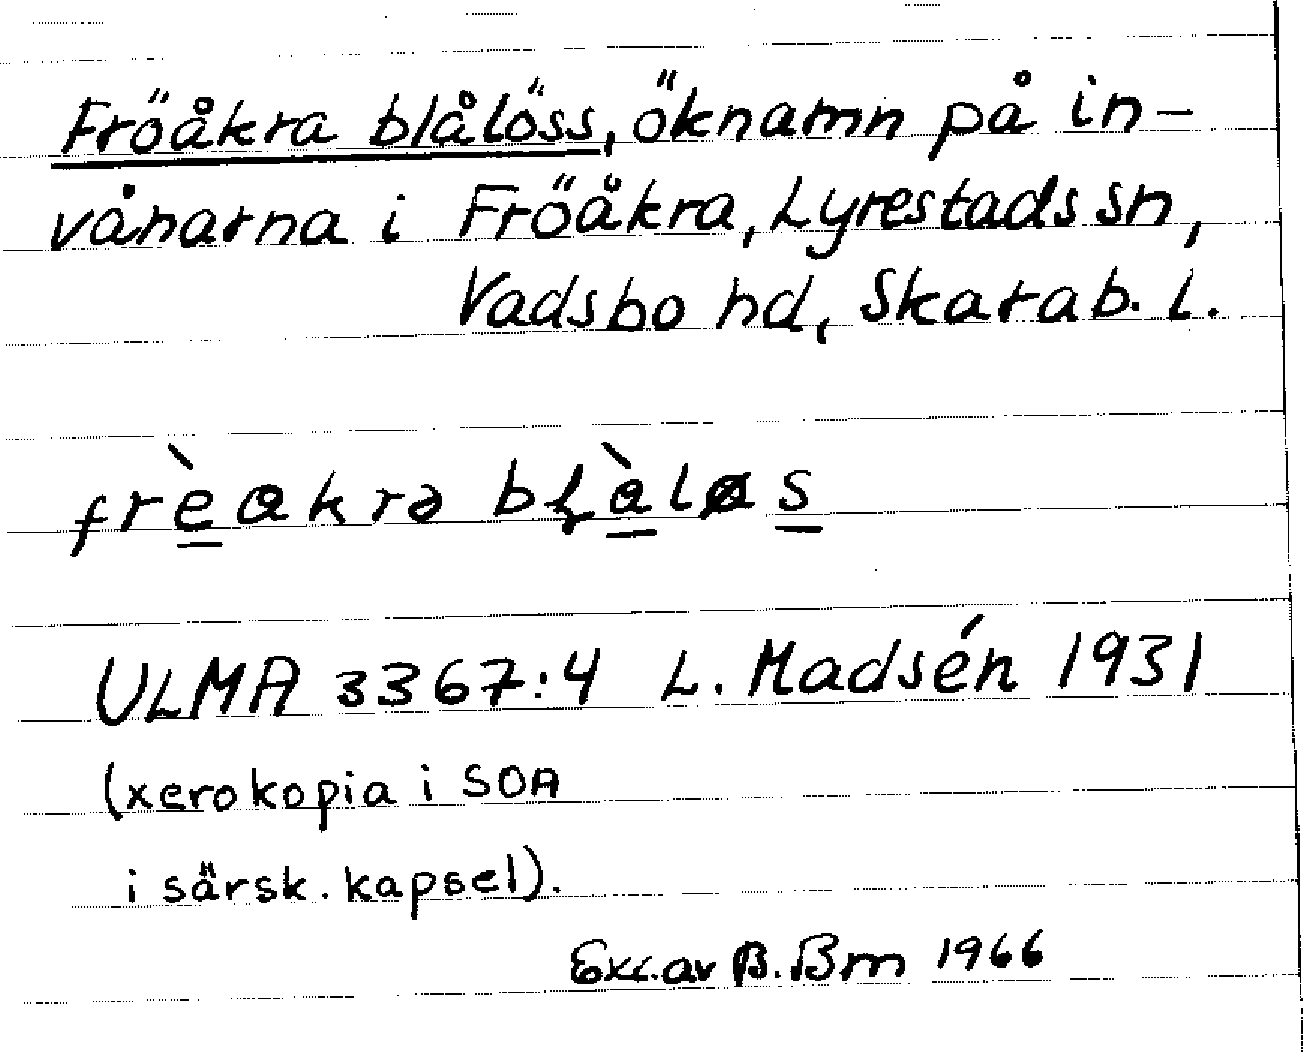 Fröåkra blålöss, öknamn på in-
vånarna i Fröåkra, Lyrestads sn,
Vadsbo hd, Skarab. l.
ULMA 3367:4 L. Madsén 1931
(xerokopia i SOA
i särsk. kapsel).
Exc. av B. Bm 1966